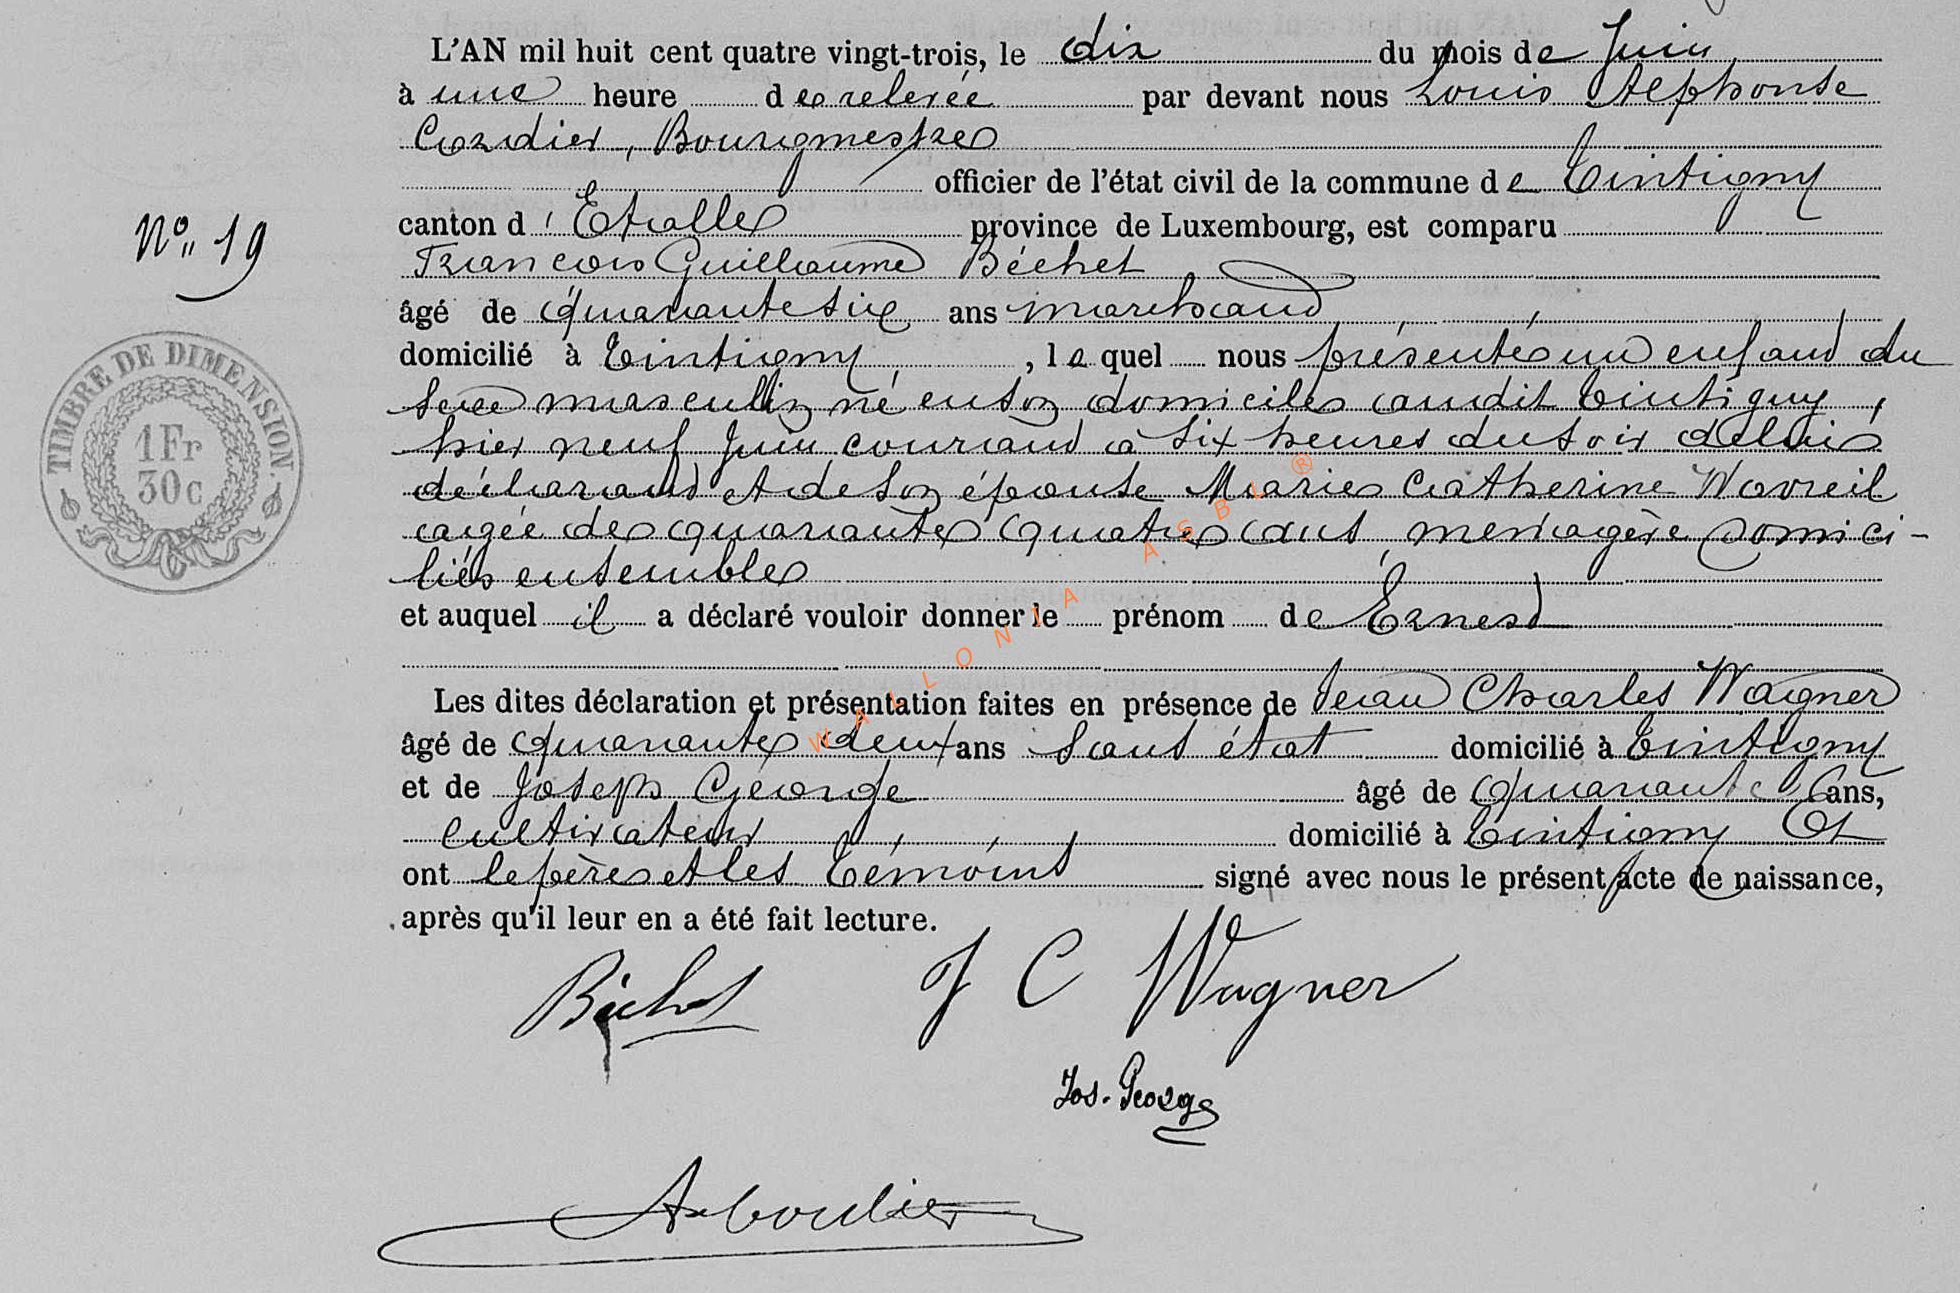 L'AN mil huit cent quatre vingt-trois, le dix du mois de Juin
à une heure de relevée par devant nous Louis Alphonse
Cordier, Bourgmestre
officier de l'état civil de la commune de Tintigny
canton d'Etalle province de Luxembourg, est comparu
N° 19
François Guillaume Béchet
âgé de quarante six ans marchand
domicilié à Tintigny, lequel nous présente un enfant du
TIMBRE DE DIMENSION
1Fr
30c
sexe masculin né en son domicile audit Tintigny,
hier neuf Juin courant à six heures du soir de lui
déclarant et de son épouse Marie Catherine Wavreil
âgée de quarante quatre ans, ménagère domici-
liés ensemble
et auquel il a déclaré vouloir donner le prénom de Ernest
WALLONIA ASBL ®
Les dites déclaration et présentation faites en présence de Jean Charles Wagner
âgé de quarante deux ans sans état domicilié à Tintigny
et de Joseph George âgé de quarante ans,
cultivateur domicilié à Tintigny Et
ont le père et les témoins signé avec nous le présent acte de naissance,
après qu'il leur en a été fait lecture.
Béchet J C Wagner
Jos. George